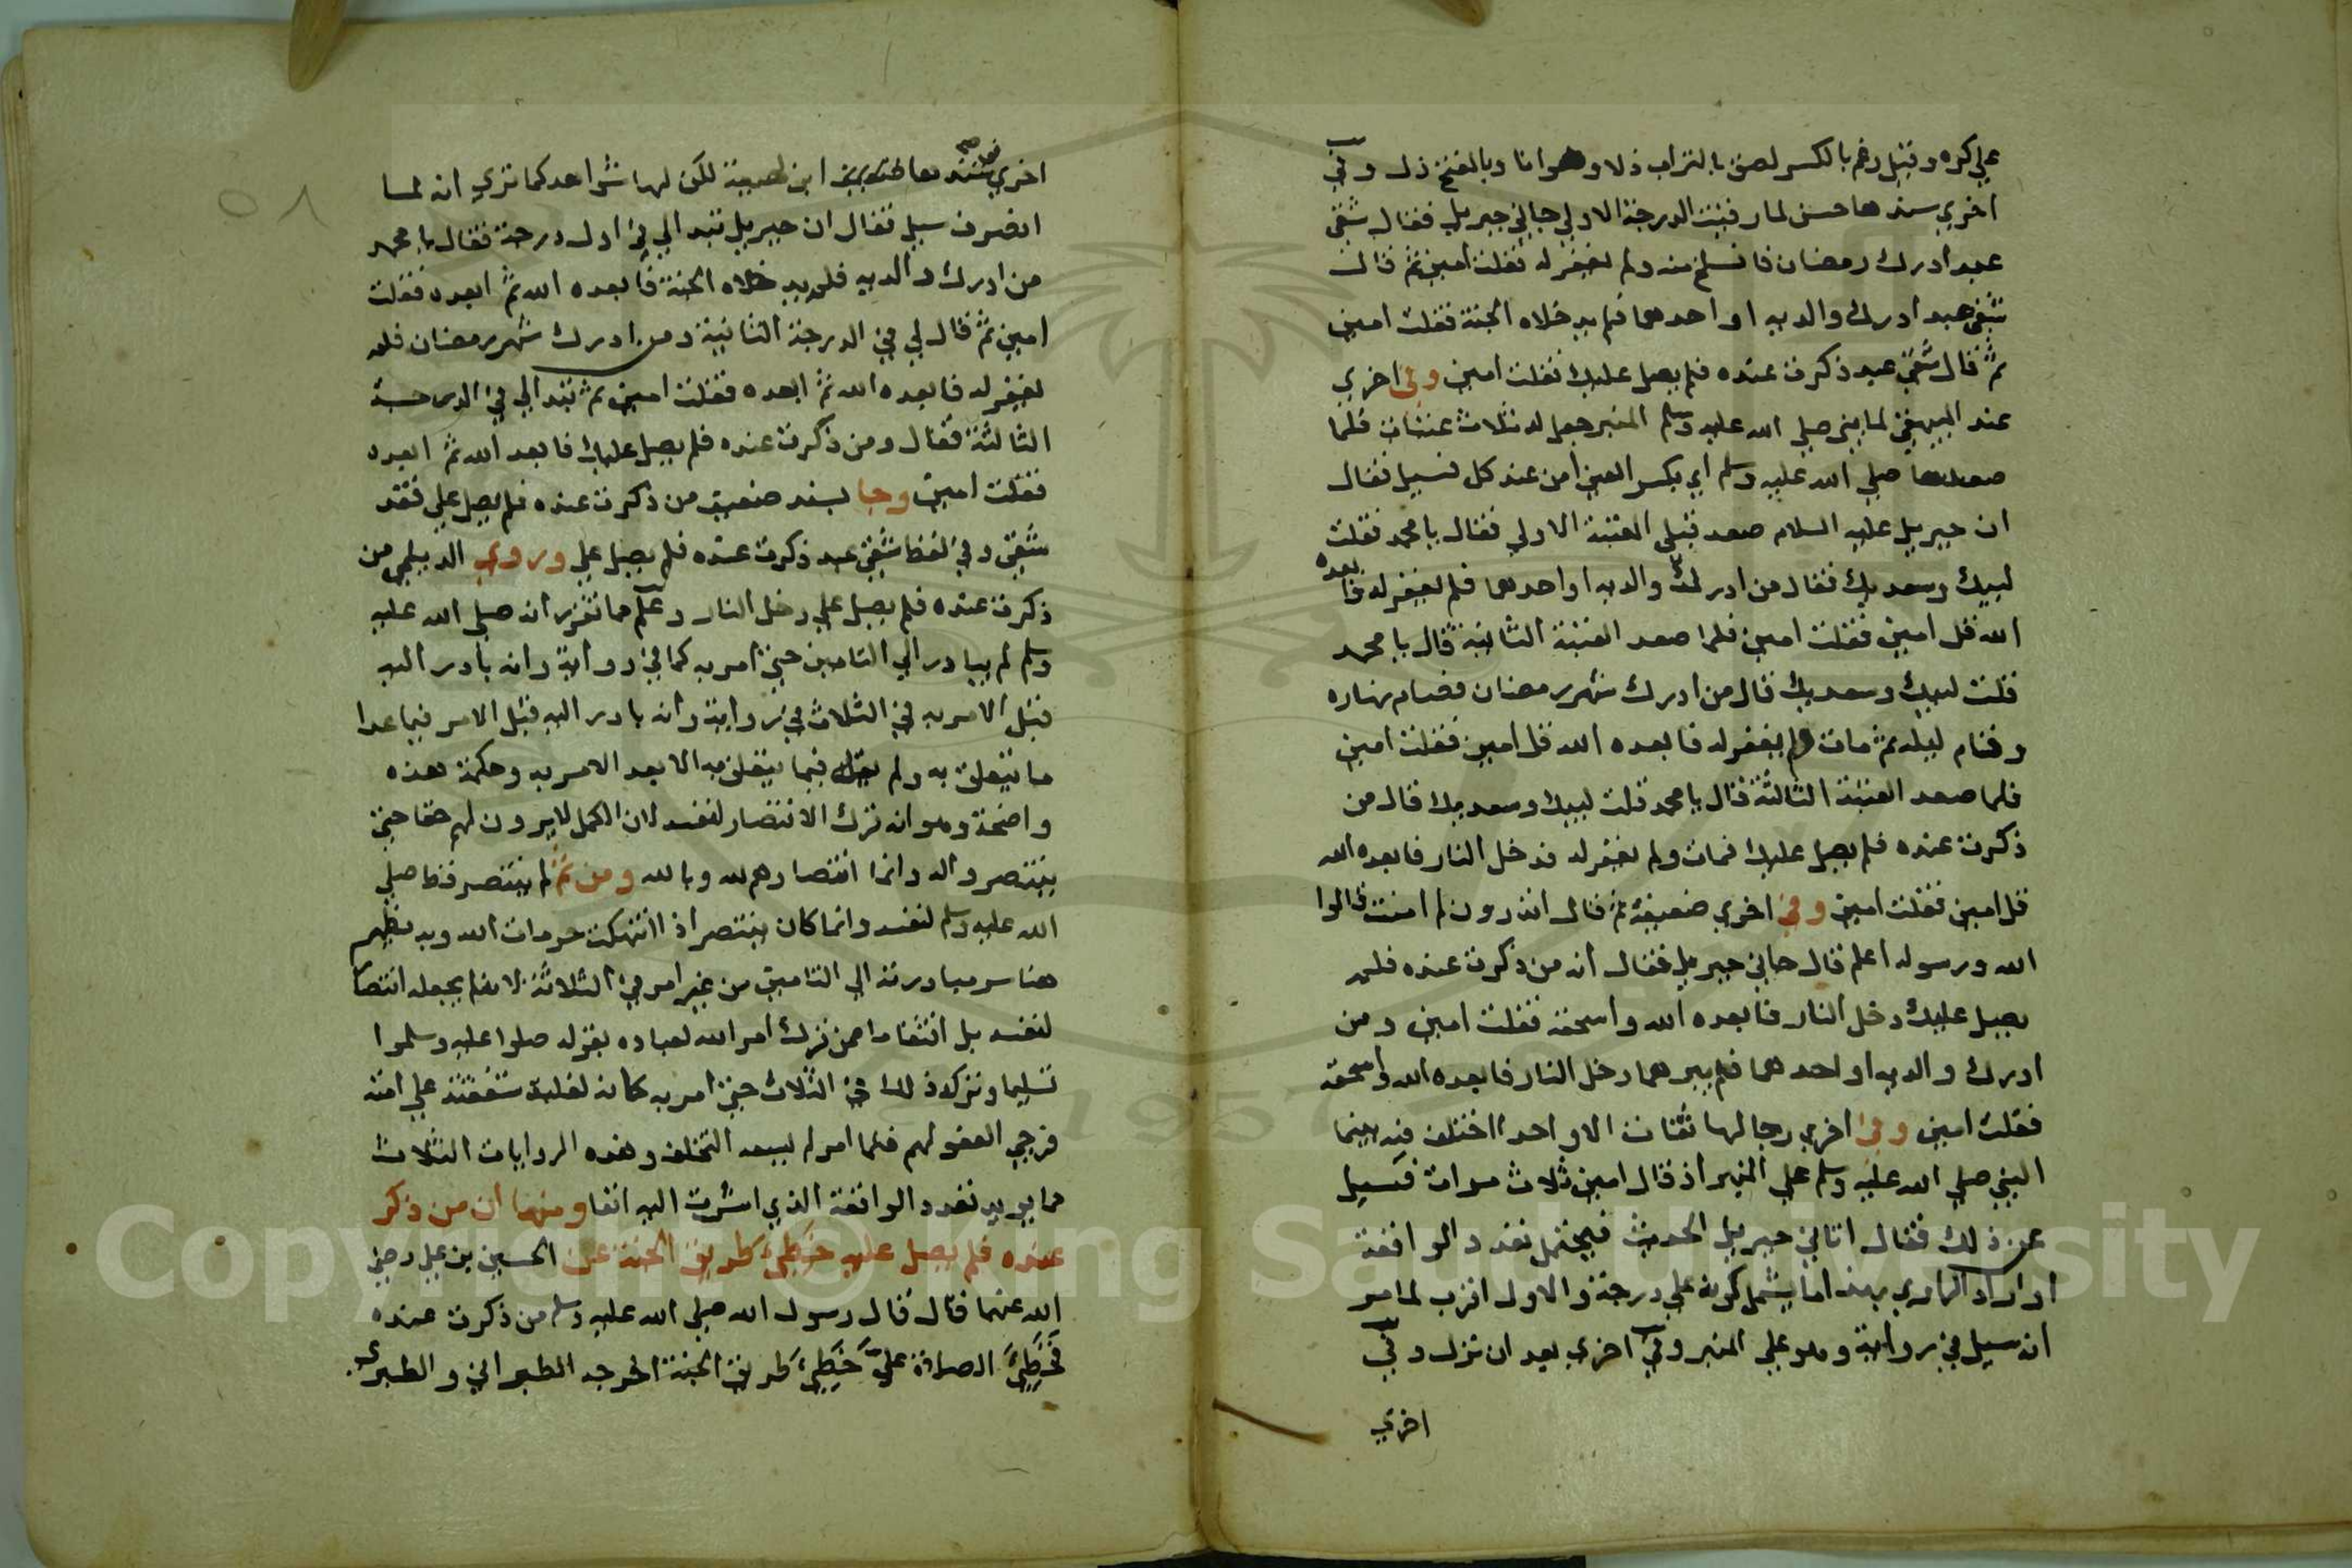 على كره وقيل رغم بالكسر لصق بالتراب ذلا وهوانا وبالفتح ذل وفي
اخري سندها حسن لما رقيت الدرجة الاولي جاني جبريل فقال شقي
عبد ادرك رمضان فانسلخ منه ولم يغفر له فقلت امين ثم قال
شقي عبد ادرك والديه او احدهما فلم يدخلاه الجنة فقلت امين
ثم قال شقي عبد ذكرت عنده فلم يصل عليك فقلت امين وفي اخري
عند البيهقي لما بني صلي الله عليه وسلم المنبر جعل له ثلاث عتبات فلما
صعدها صلي الله عليه وسلم اي بكسر العين امن عند كل فسيل فقال
ان جبريل عليه السلام صعد قبلي العتبة الاولي فقال يا محمد فقلت
لبيك وسعديك فقال من ادرك والديه او احدهما فلم يغفر له فابعده
الله قل امين فقلت امين فلما صعد العتبة الثانية قال يا محمد
قلت لبيك وسعديك قال من ادرك شهر رمضان فصام نهاره
وقام ليله ثم مات ولم يغفر له فابعده الله قل امين فقلت امين
فلما صعد العتبة الثالثة قال يا محمد قلت لبيك وسعديك قال من
ذكرت عنده فلم يصل عليك فمات ولم يغفر له فدخل النار فابعده الله
قل امين فقلت امين وفي اخري ضعيفة ثم قال اتدرون لم امنت قالوا
الله ورسوله اعلم قال جاني جبريل فقال انه من ذكرت عنده فلم
يصل عليك دخل النار فابعده الله واسحقه فقلت امين ومن
ادرك والديه او احدهما فلم يبرهما دخل النار فابعده الله واسحقه
فقلت امين وفي اخري رجالها ثقات الا واحدا اختلف فيه بينما
النبي صلي الله عليه وسلم علي المنبر اذ قال امين ثلاث مرات فسيل
عن ذلك فقال اتاني جبريل الحديث فيحتمل تعدد الواقعة
او اراد الراوي بهذا ما يشمل كونه علي درجته والاول اقرب لما مر
انه سيل في رواية وهو علي المنبر وفي اخري بعد ان نزل وفي
اخري
٥٨
اخري ابن لهيعة لكن لها شواهد كما تري انه لما
انصرف سيل فقال ان جبريل تبدالي في اول درجة فقال يا محمد
من ادرك والديه فلم يدخلاه الجنة فابعده الله ثم ابعده فقلت
امين ثم قال لي في الدرجة الثانية ومن ادرك شهر رمضان فلم
يغفر له فابعده الله ثم ابعده فقلت امين ثم تبدالي في الدرجة
الثالثة فقال ومن ذكرت عنده فلم يصل عليك فابعد الله ثم ابعده
فقلت امين وجا بسند ضعيف من ذكرت عنده فلم يصل علي فقد
شقي وفي لفظ شقي عبد ذكرت عنده فلم يصل علي وروي الديلمي من
ذكرت عنده فلم يصل علي دخل النار وعلم مما تقرر انه صلي الله عليه
وسلم لم يبادر الي التامين حتي امر به كما في رواية وانه بادر اليه
قبل الامر به في الثلاث في رواية وانه بادر اليه قبل الامر فيما عدا
ما يتعلق به ولم يقل فيما يتعلق به الا بعد الامر به وحكمة هذه
واضحة وهو انه ترك الانتصار لنفسه لان الكمل لا يرون لهم حقا حتي
ينتصروا له وانما انتصارهم لله وبالله ومن ثم لم ينتصر قط صلي
الله عليه وسلم لنفسه وانما كان ينتصر اذا انتهكت حرمات الله وبه يظهر
هنا سر مبادرته الي التامين من غير امر في الثلاثة لانه لم يجعله انتصا
لنفسه بل انتقاما ممن ترك امر الله لعباده بقوله صلوا عليه وسلموا
تسليما وتركه ذلك في الثلاث حتي امر به كانه لغلبة شفقته علي امته
فرجي العفو لهم فلما امر لم يسعه التخلف وهذه الروايات الثلاث
مما يويد تعدد الواقعة الذي اشرت اليه انفا ومنها ان من ذكر
عنده فلم يصل عليه خطي طريق الجنة عن الحسين بن علي رضي
الله عنهما قال قال رسول الله صلي الله عليه وسلم من ذكرت عنده
فخطي الصلاة علي خطي طريق الجنة اخرجه الطبراني والطبري
Copyright © King Saud University
1957